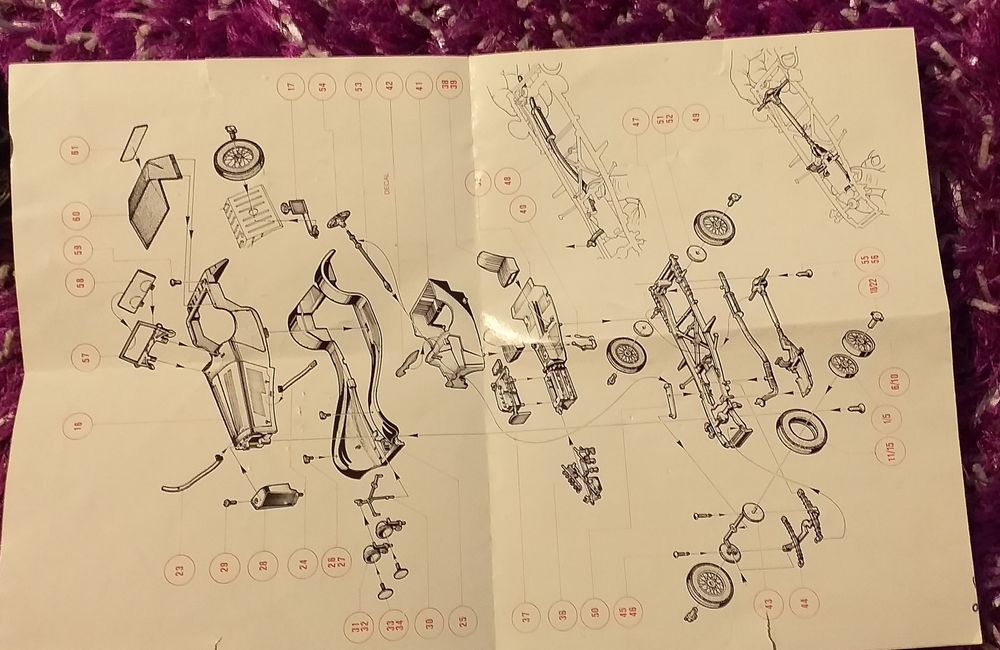 17
54
53
42
41
38
39
47
51
52
49
61
60
59
58
57
16
DECAL
48
40
55
56
18/22
6/10
1/5
11/15
23
29
28
24
26
27
31
32
33
34
30
25
37
36
50
45
46
43
44